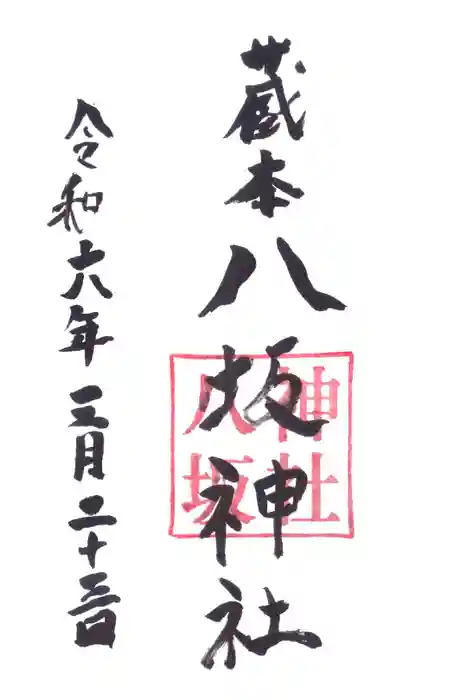 蔵本八坂神社
八坂
神社
令和六年三月二十三日